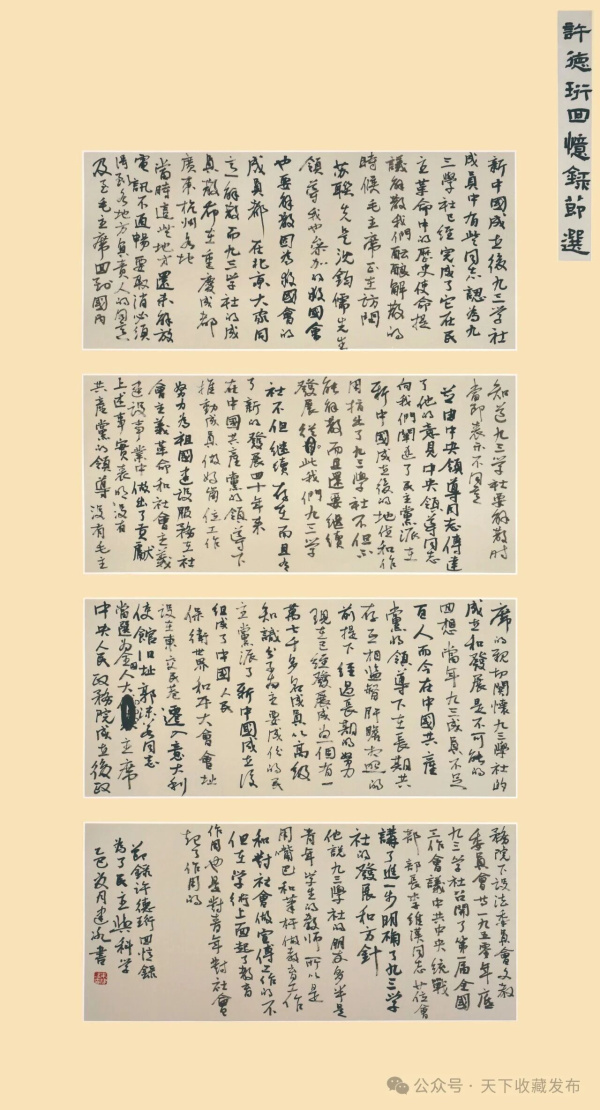 許德珩回憶錄節選
新中國成立後九三学社
成員中有些同志認為九
三學社已經完成了它在民
主革命中的歷史使命提
議解散我們醖釀解散的
時候毛主席正在訪問
苏联先是沈鈞儒先生
領導我也參加的救國會
也要解散因为救國會的
成員都在北京大家同
意解散而九三学社的成
員散布在重慶成都
廣東杭州各地
當時這些地方還未解放
電訊不通暢要取消必須
得到各地方負責人的同意
及至毛主席回到國內
知道九三学社要解散时
當即表示不同意
並由中央領導同志傳達
了他的意見中央領導同志
向我們闡述了民主黨派在
新中國成立後的地位和作
用指出了九三學社不但不
能解散而且還要继续
發展從此我們九三学
社不但继續存在而且有
了新的發展四十年来
在中國共產黨的領導下
推動成員做好崗位工作
努力为祖國建設服務在社
會主義革命和社會主義
建設事業中做出了貢獻
上述事實表明没有
共產黨的領導没有毛主
席的親切關懷九三學社的
成立和發展是不可能的
回想當年九三成員不足
百人而今在中國共產
黨的領導下在長期共
存互相監督肝膽相照的
前提下經過長期的努力
現在已經發展成为一個有一
萬七千多名成員以高級
知識分子为主要成份的民
主黨派了新中國成立後
組成了中國人民
保衛世界和平大會會址
設在東交民巷遷入意大利
使館旧址郭沫若同志
當選为全人大主席
中央人民政務院成立後政
務院下設法委員會文教
委員會廿一九五零年底
九三学社召開了第一届全國
工作會議中共中央統戰
部部長李維漢同志在會
講了進一步明确了九三学
社的發展和方針
他說九三學社的朋友多半是
青年学生的教师所以是
用嘴巴和笔杆做教育工作
和對社會做宣傳工作的不
但在学術上面起了教育
作用也是對青年對社會
起了作用的
節錄許德珩回憶錄
為了民主與科学
乙巳月建書
公众号·天下收藏发布